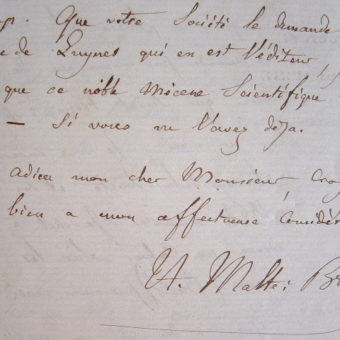 Que votre Société le demande
de Luynes qui en est l'éditeur,
que ce noble Mécène Scientifique
— Si vous ne l'avez déja.
adieu mon cher Monsieur, Croy
bien a mon affectueuse Considér
V. A. Malte-Br